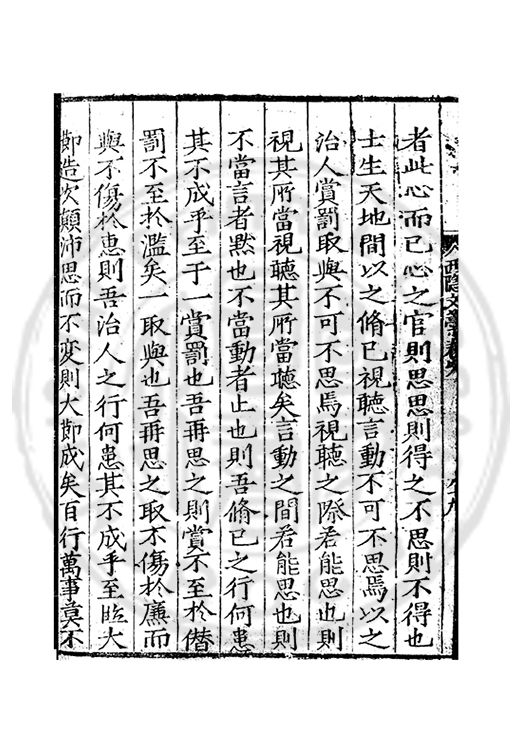 者此心而已心之官則思思則得之不思則不得也
士生天地間以之脩已視聽言動不可不思焉以之
治人賞罰取與不可不思焉視聽之際若能思也則
視其所當視聽其所當聽矣言動之間若能思也則
不當言者黙也不當動者止也則吾脩已之行何患
其不成乎至于一賞罰也吾再思之則賞不至於僣
罰不至於濫矣一取與也吾再思之取不傷於廉而
與不傷於惠則吾治人之行何患其不成乎至臨大
節造次顛沛思而不變則大節成矣百行萬事莫不